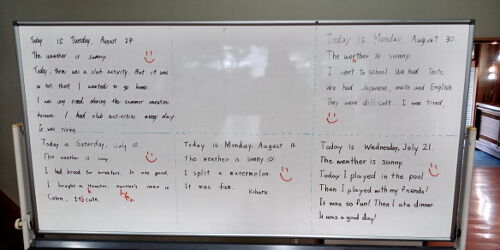 Today is Tuesday, August 24.
The weather is sunny.
Today, there was a club activity. But it was
so hot that I wanted to go home.
I was very tired during the summer vacation
because I had club activities every day.
It was tiring.
Today is Monday August 30.
The weather is sunny.
I went to school. We had Tests.
We had Japanese, math and English.
They were difficult. I was tired.
Today is Saturday, July
The weather is sunny
I had bread for breakfast. It was good.
I bought a Hamster, hamster's name is
It's cute.
Today is Monday, August 16
The weather is sunny
I split a watermelon
It was fun.
Today is Wednesday, July 21.
The weather is sunny.
Today I played in the pool.
Then I played with my friends!
It was so fun! Then I ate dinner.
It was a good day!